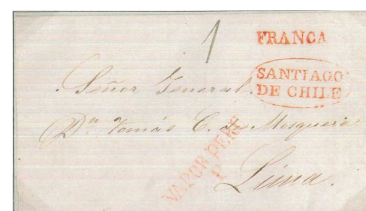 1
FRANCA
SANTIAGO
DE CHILE
Señor General
Dn Tomás C. de Mosquera
VAPOR PERU
Lima.